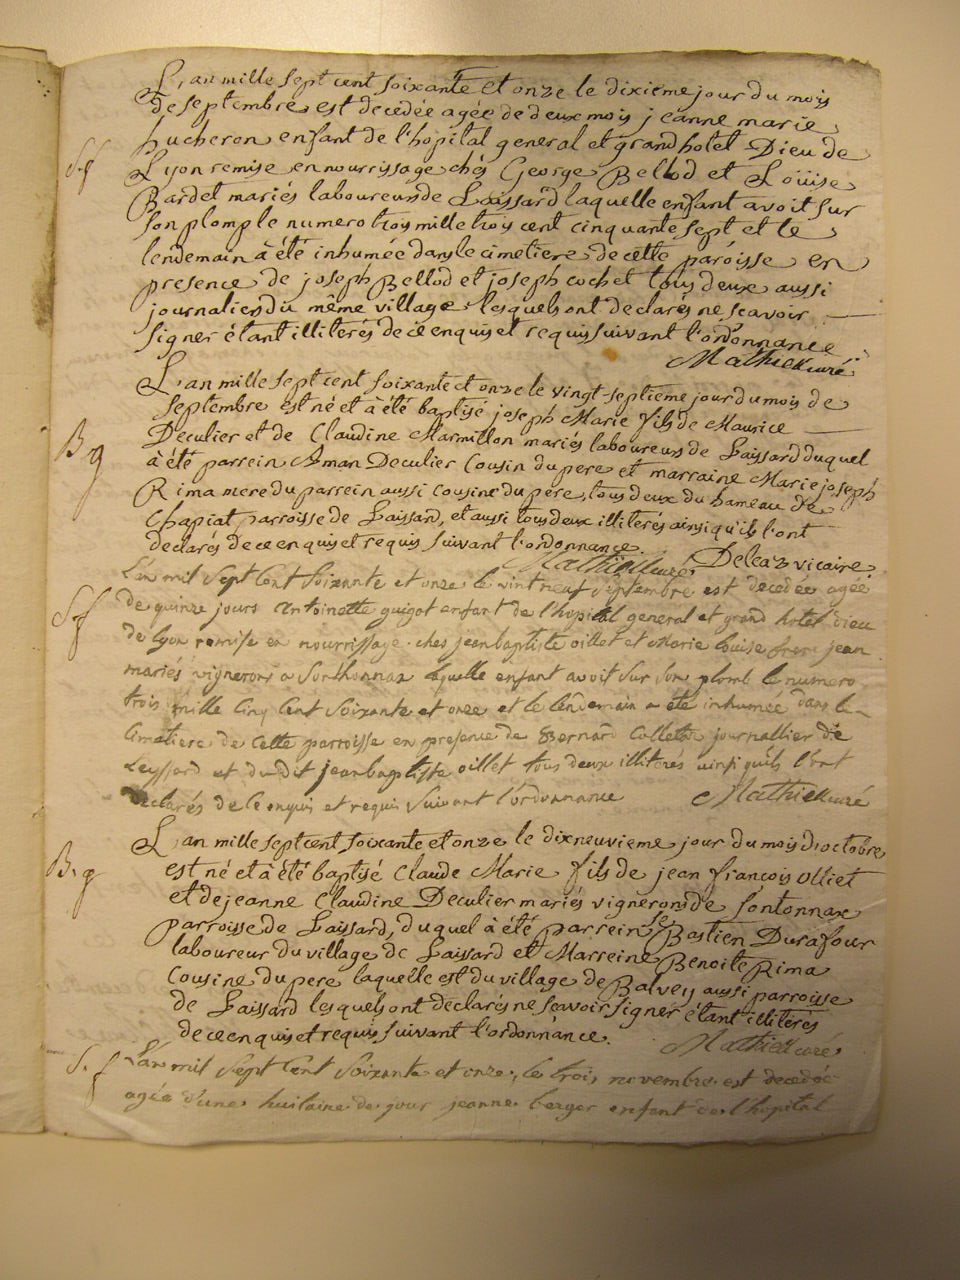 L'an mille sept cent soixante et onze le dixieme jour du mois
de septembre est decedée agée de deux mois jeanne marie
hucheron enfant de l'hopital general et grand hotel Dieu de
S. f
Lyon remise en nourrissage chés George Bellod et Loüise
Bardet mariés laboureurs de Laissard laquelle enfant avoit sur
son plomp le numero troy mille troy cent cinquante sept et le
lendemain à été inhumée dans le cimetiere de cette paroisse en
presence de joseph Bellod et joseph cochet tous deux aussi
journaliers du même village lesquels ont declarés ne scavoir
signer étant illiterés de ce enquis et requis suivant l'ordonnance
Mathieu curé
L'an mille sept cent soixante et onze le vingt-septieme jour du mois de
septembre est né et à été baptisé joseph Marie fils de Maurice
B g
Deculier et de Claudine Marmillon mariés laboureurs de Laissard duquel
à été parrein Aman Deculier Cousin du pere et marraine Marie joseph
Rima mere du parrein aussi Cousine du pere, tous deux du hameau de
Chapiat parroisse de Laissard, et aussi tous deux illiterés ainsi qu'ils l'ont
declarés de ce enquis et requis suivant l'ordonnance.
Mathieu curé Deleaz vicaire
L'an mil sept Cent Soixante et onze le vint neuf septembre est decedée agée
S. f
de quinze jours Antoinette guigot enfant de l'hopital general et grand hotel dieu
de lyon remise en nourrissage chez jean baptiste oillet et Marie louise jean
mariés vignerons a Sonthonnax laquelle enfant avoit sur son plomb le numero
trois mille Cinq Cent Soixante et onze et le lendemain a été inhumée dans le
Cimetiere de Cette parroisse en presence de Bernard Collette journallier de
Leyssard et du dit jean baptiste oillet tous deux illiterés ainsi quils l'ont
declarés de Ce enquis et requis Suivant l'ordonnance Mathieu curé
L'an mille sept cent soixante et onze le dixneuvieme jour du mois d'octobre
B. g
est né et à été baptisé Claude Marie fils de jean françois olliet
et de jeanne Claudine Deculier mariés vignerons de sontonnax
parroisse de Laissard, duquel à été parrein Bastien Durafour
laboureur du village de Laissard et Marreine Benoite Rima
Cousine du pere laquelle est du village de Balvey aussi parroisse
de Laissard lesquels ont declarés ne scavoir signer étant illiterés
de ce enquis et requis suivant l'ordonnance.
Mathieu curé
S. f
L'an mil Sept Cent Soixante et onze, le trois novembre est decedée
agée d'une huitaine de jour jeanne berger enfant de l'hopital